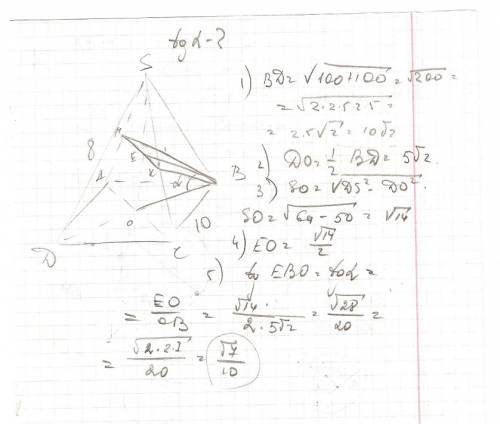 tg α - ?
S
8
M
E
K
A
α
B
O
10
D
C
1) BD = √100+100 = √200 =
= √2·2·5·2·5 =
= 2·5√2 = 10√2
2) DO = 1/2 BD = 5√2.
3) SO = √DS² - DO².
SO = √64 - 50 = √14
4) EO = √14/2
5) tg EBO = tg α =
= EO/OB = √14/2·5√2 = √28/20 =
= √2·2·7/20 = √7/10